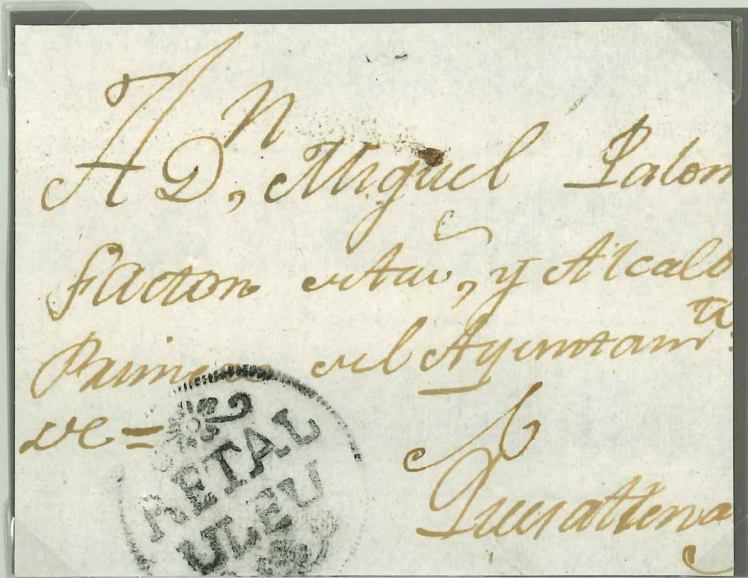 A Dn, Miguel Palom
factor de Tav., y Alcald
Primero del Ayuntamto
de =
A
Quesaltena
RETAL
ULEU